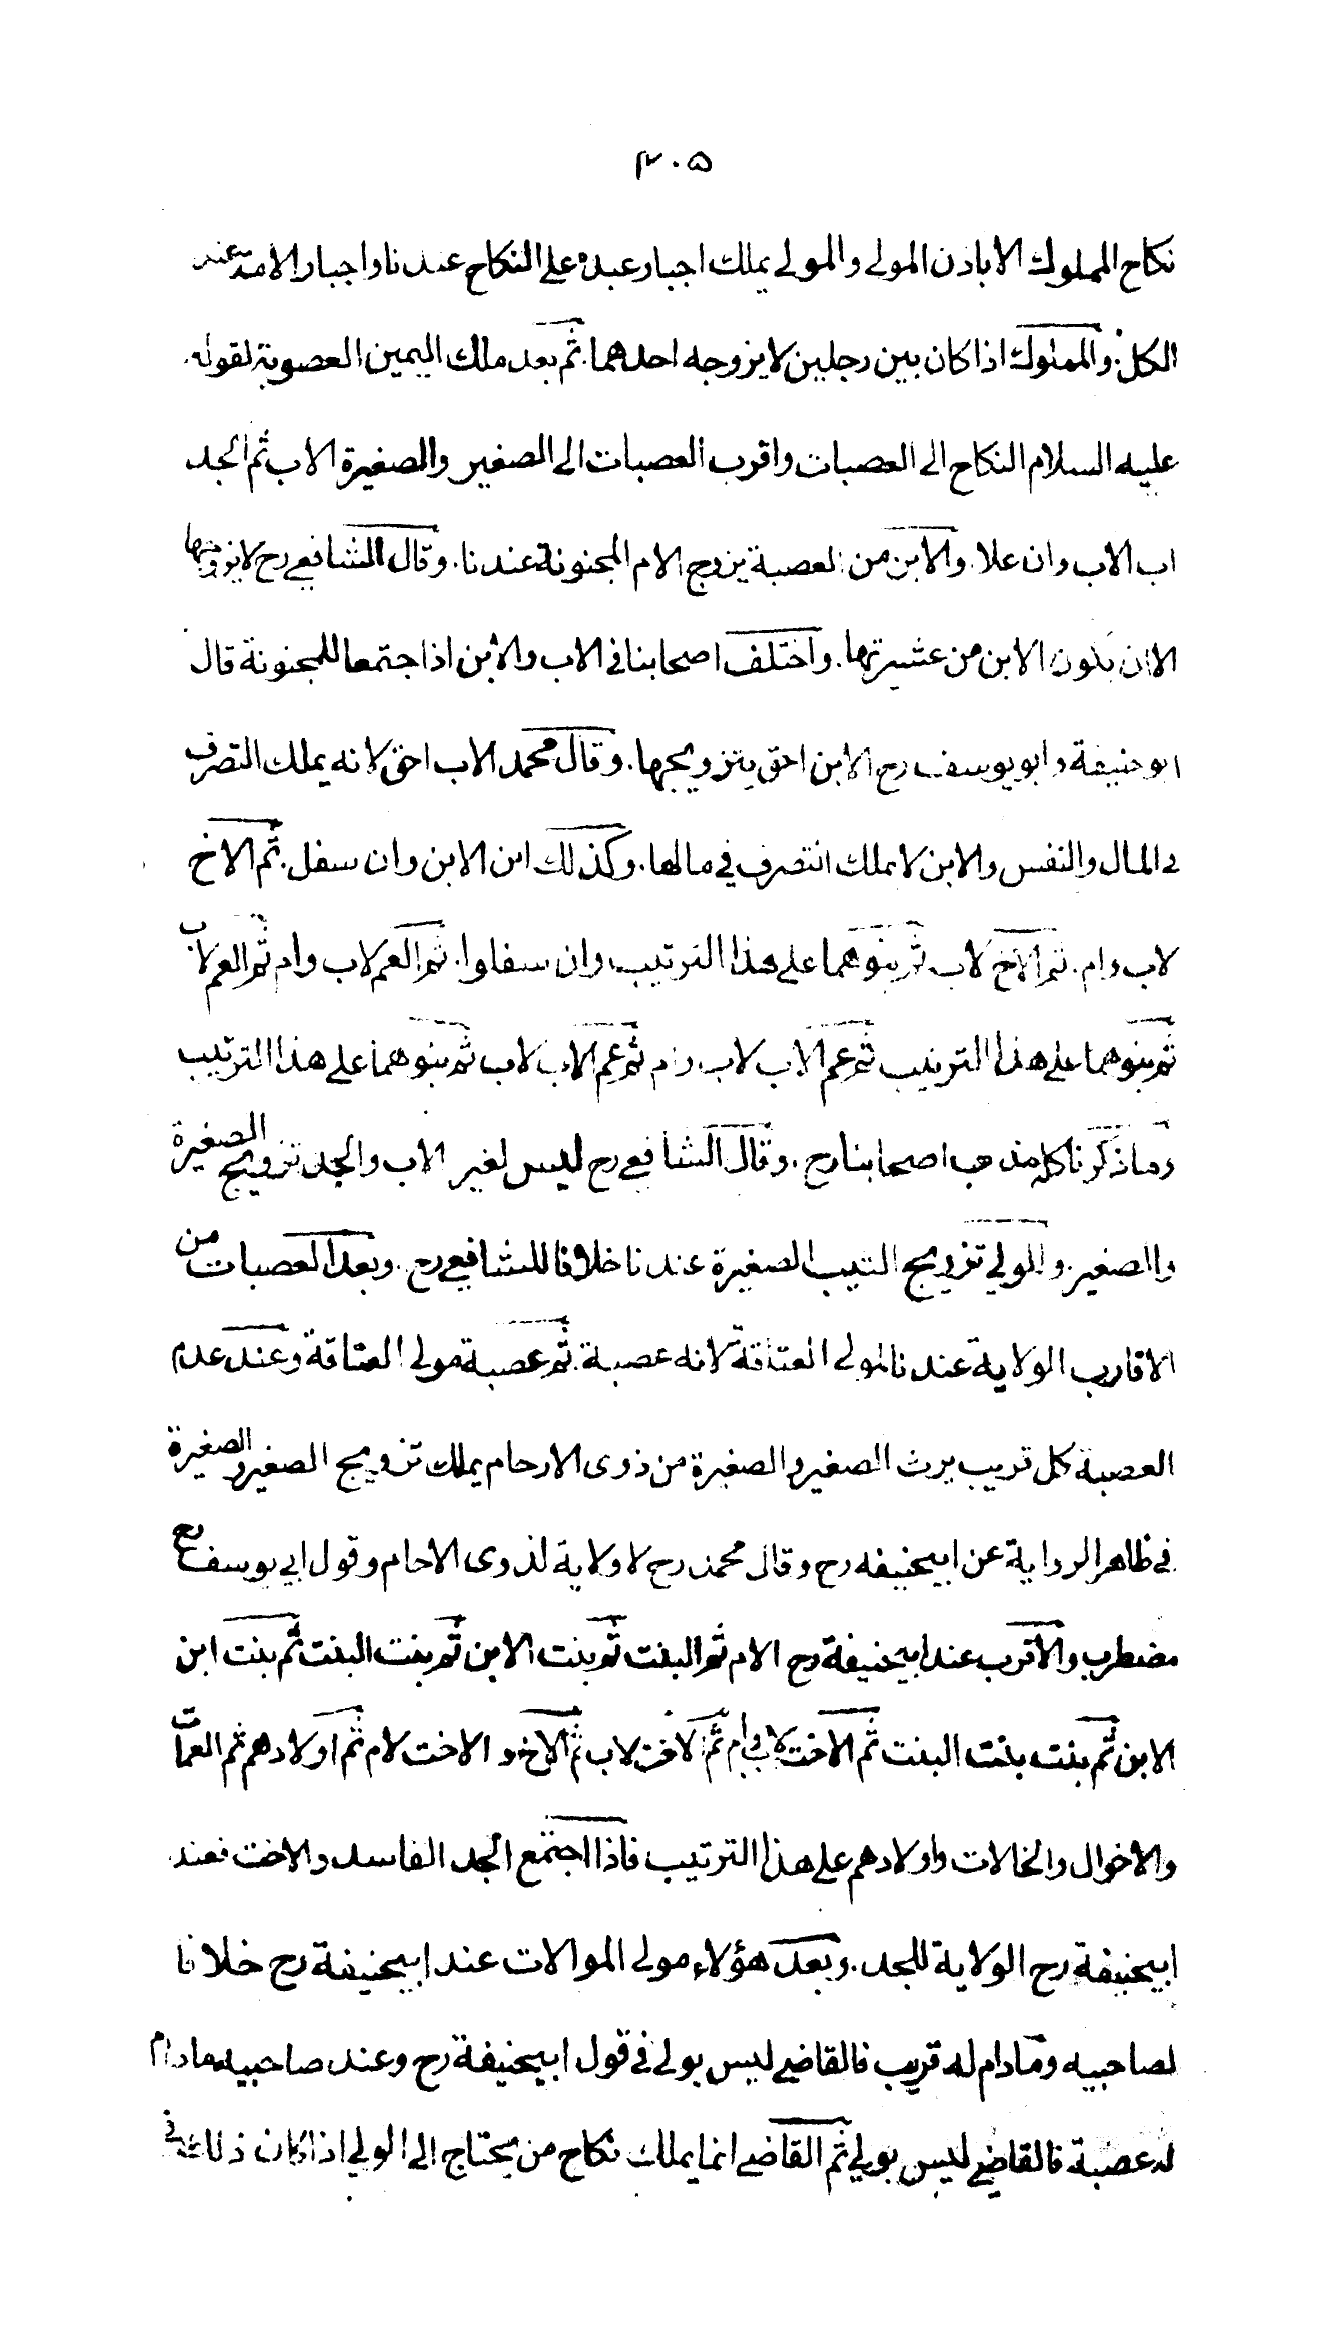 ٣٠٥
نكاح المملوك الا باذن المولى والمولى يملك اجبار عبده على النكاح عندنا واجبار الامة عند
الكل. والمملوك اذا كان بين رجلين لا يزوجه احدهما. ثم بعد ملك اليمين العصوبة لقوله
عليه السلام النكاح الى العصبات واقرب العصبات الى الصغير والصغيرة الاب ثم الجد
اب الاب وان علا. والابن من العصبة يزوج الام المجنونة عندنا. وقال الشافعي رح لا يزوجها
الا ان يكون الابن من عشيرتها. واختلف اصحابنا في الاب والابن اذا اجتمعا للمجنونة قال
ابو حنيفة وابو يوسف رح الابن احق بتزويجها. وقال محمد الاب احق لانه يملك التصرف
في المال والنفس والابن لا يملك التصرف في مالها. وكذلك ابن الابن وان سفل. ثم الاخ
لاب وام. ثم الاخ لاب ثم بنوهما على هذا الترتيب وان سفلوا. ثم العم لاب وام ثم العم لاب
ثم بنوهما على هذا الترتيب ثم عم الاب لاب وام ثم عم الاب لاب ثم بنوهما على هذا الترتيب
وما ذكرنا كله مذهب اصحابنا رح. وقال الشافعي رح ليس لغير الاب والجد تزويج الصغيرة
والصغير. وللولي تزويج الثيب الصغيرة عندنا خلافا للشافعي رح. وبعد العصبات من
الاقارب الولاية عندنا لمولى العتاقة لانه عصبة. ثم عصبة مولى العتاقة وعند عدم
العصبة كل قريب يرث الصغير والصغيرة من ذوى الارحام يملك تزويج الصغير والصغيرة
في ظاهر الرواية عن ابيحنيفه رح وقال محمد رح لا ولاية لذوى الاحام وقول ابي يوسف رح
مضطرب والاقرب عند ابيحنيفة رح الام ثم البنت ثم بنت الابن ثم بنت البنت ثم بنت ابن
الابن ثم بنت بنت البنت ثم الاخت لاب وام ثم الاخت لاب ثم الاخ و الاخت لام ثم اولادهم ثم العمات
والاخوال والخالات واولادهم على هذا الترتيب فاذا اجتمع الجد الفاسد والاخت فعند
ابيحنيفة رح الولاية للجد. وبعد هؤلاء مولى الموالات عند ابيحنيفة رح خلافا
لصاحبيه وما دام له قريب فالقاضي ليس بولي في قول ابيحنيفة رح وعند صاحبيه ما دام
له عصبة فالقاضي ليس بولي ثم القاضي انما يملك نكاح من يحتاج الى الولي اذا كان ذلك في